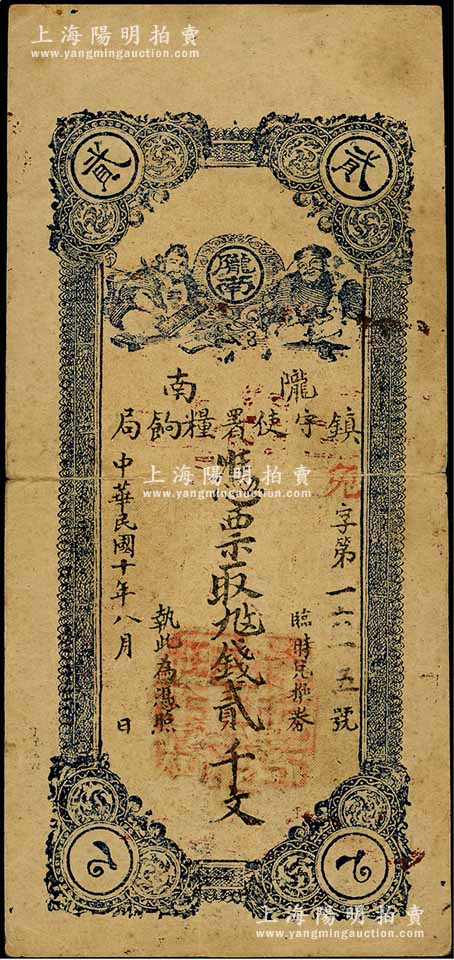 上海陽明拍賣
www.yangmingauction.com
貳 貳
隴南
南 隴
局餉糧署使守鎮
免字第一六一五號
臨時兌換券
憑票取九八錢貳千文
執此為憑照
中華民國十年八月 日
上海陽明拍賣
www.yangmingauction.com
上海陽明拍賣
www.yangmingauction.com